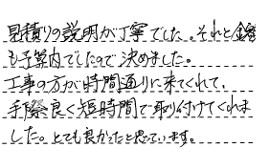 見積りの説明が丁寧でした。それと金額
も予算内でしたので決めました。
工事の方が時間通りに来てくれて、
手際良く短時間で取り付けてくれま
した。とても良かったと思っています。